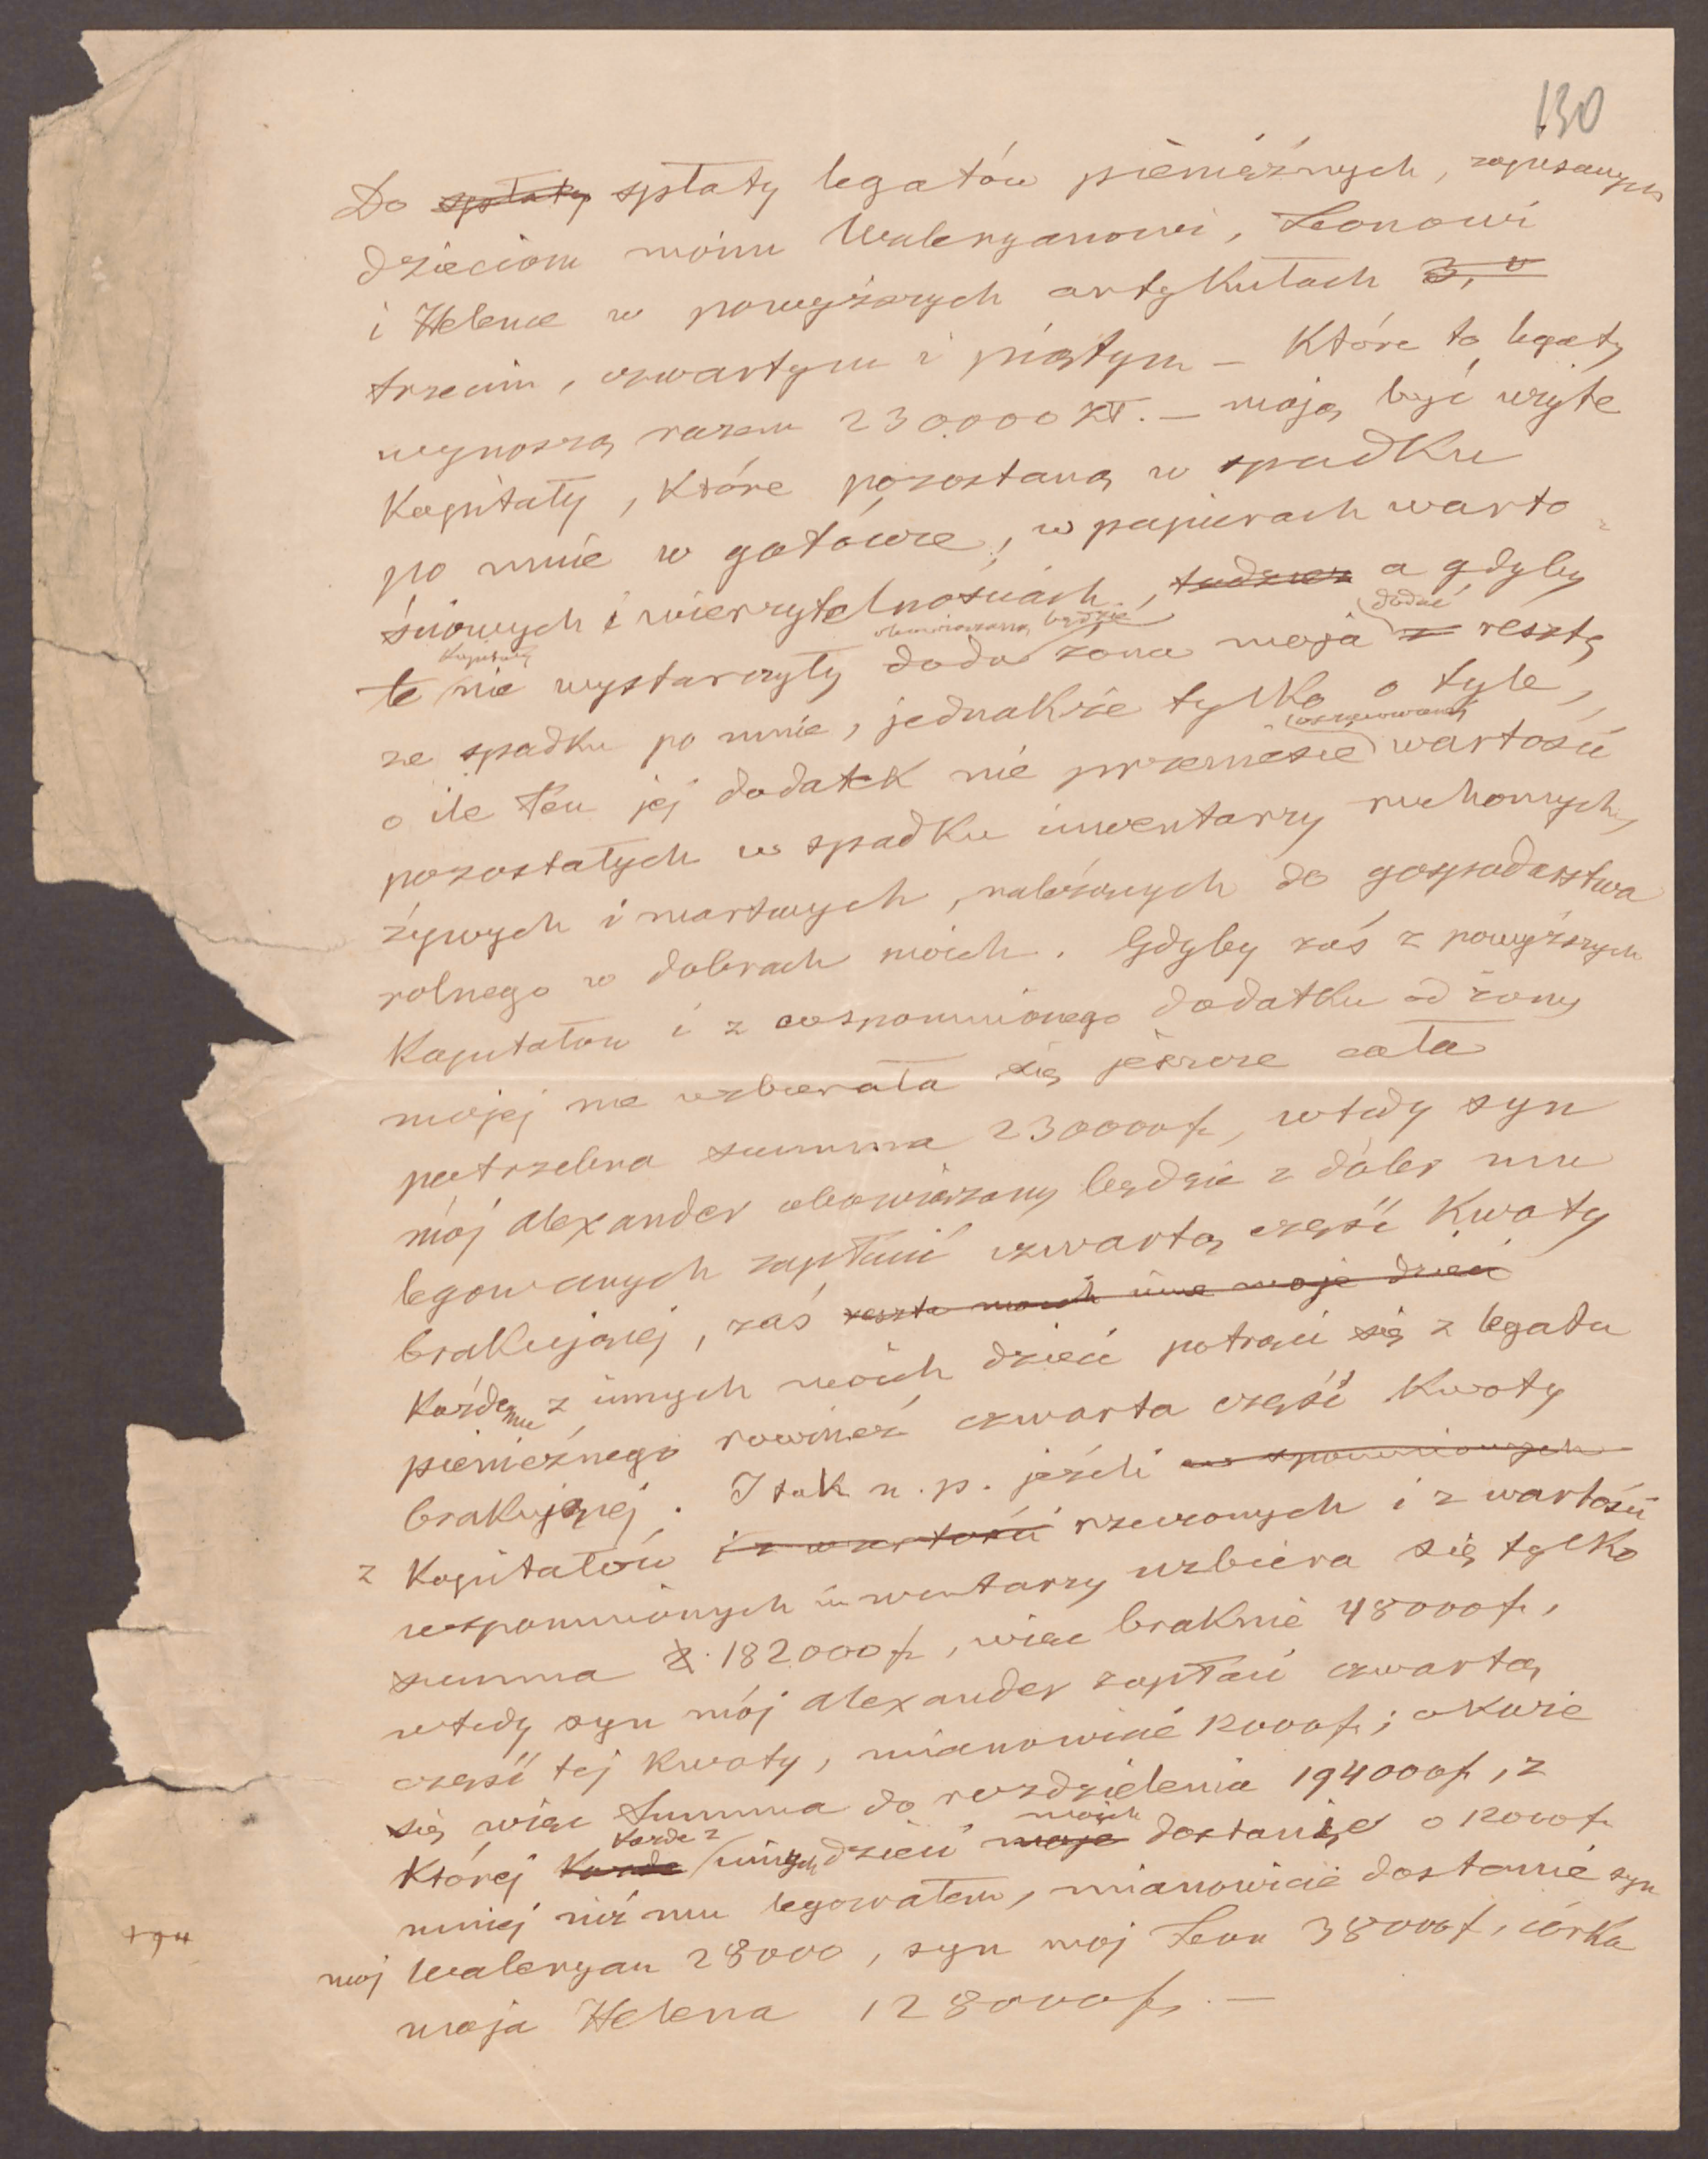 130
Do spłaty spłaty legatów pieniężnych, zapisanych
dzieciom moim Waleryanowi, Leonowi
i Helenie w powyższych artykułach 3,
trzecim, czwartym i piątym – które to legaty
wynoszą razem 230000 zł. – mają być użyte
kapitały, które pozostaną w spadku
po mnie w gotówce, w papierach warto-
ściowych i wierzytelnościach, tudzież a gdyby
kapitały obowiązaną będzie dodać
te nie wystarczyły doda żona moja z resztę
ze spadku po mnie, jednakże tylko o tyle,
oszacowanej
o ile ten jej dodatek nie przeniesie wartości
pozostałych w spadku inwentarzy ruchomych,
żywych i martwych, należących do gospodarstwa
rolnego w dobrach moich. Gdyby zaś z powyższych
kapitałow i z wspomnionego dodatku od żony
mojej nie uzbierała się jeszcze cała
potrzebna summa 230000 f, wtedy syn
mój Alexander obowiązany będzie z dóbr mu
legowanych zapłacić czwartą część kwoty
brakującej, zaś reszta moich inne moje dzieci
każdemu z innych moich dzieci potrąci się z legatu
pienieżnego rownież czwarta część kwoty
brakującej. I tak n. p. jeżeli wspomnionych
z kapitałów i z wartości rzeczonych i z wartości
wspomnionych inwentarzy uzbiera się tylko
summa 182000 f, więc braknie 48000 f,
wtedy syn mój Alexander zapłaci czwartą
część tej kwoty, mianowicie 12000 f; okaże
się więc summa do rozdzielenia 194000 f, z
każde z moich
której każde innych dzieci moje dostanie o 12000 f
mniej niż mu legowałem, mianowicie dostanie syn
moj Waleryan 28000, syn moj Leon 38000 f, córka
moja Helena 128000 f. –
194